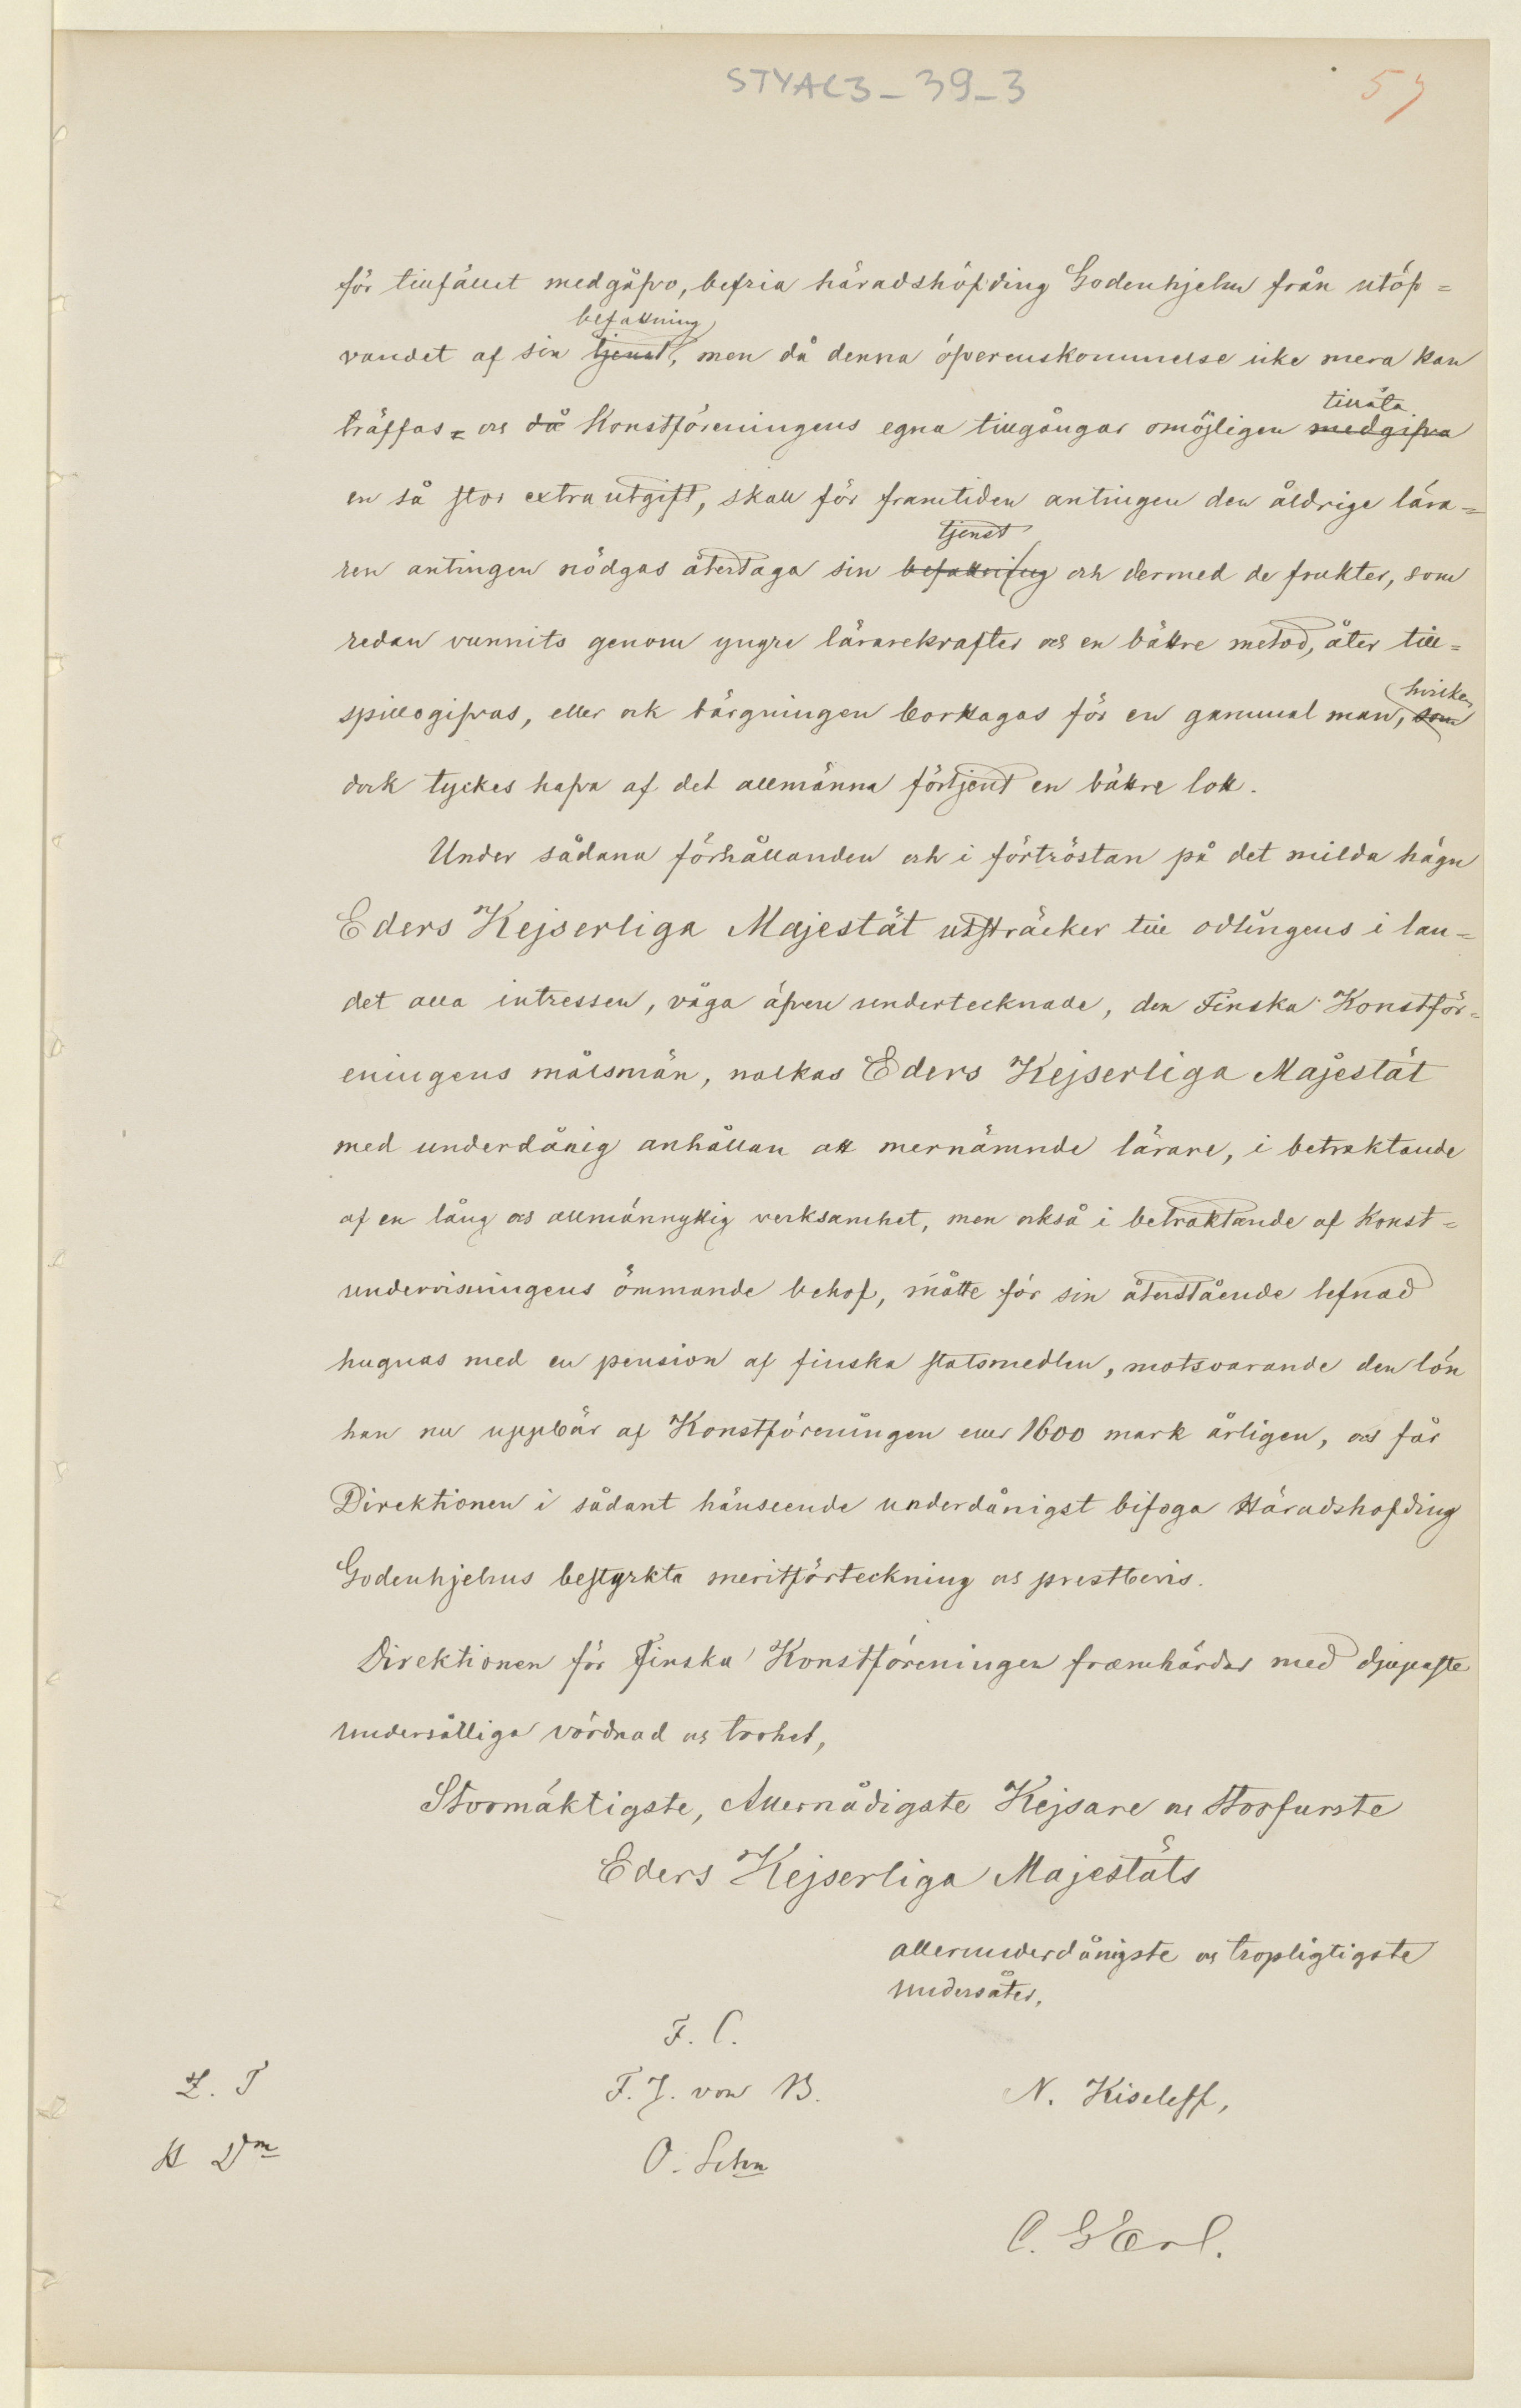 STYAC3-39-3
57
för tillfället medgåfvo, befria häradshöfding Godenhjelm från utöf=
befattning
vandet af sin tjenst, men då denna öfverenskommelse icke mera kan
tillåta
träffas = och då Konstföreningens egna tillgångar omöjligen medgifva
en så stor extra utgift, skall för framtiden antingen den åldrige lära=
tjenst
ren antingen nödgas återtaga sin befattning och dermed de frukter, som
redan vunnits genom yngre lärarekrafter och en bättre metod, åter till=
hvilken
spillogifvas, eller ock bärgningen borttagas för en gammal man, som
dock tyckes hafva af det allmänna förtjent en bättre lott.
Under sådana förhållanden och i förtröstan på det milda hägn
Eders Kejserliga Majestät utsträcker till odlingens i lan=
det alla intressen, våga äfven undertecknade, den Finska Konstför=
eningens målsmän, nalkas Eders Kejserliga Majestät
med underdånig anhållan att mernämnde lärare, i betraktande
af en lång och allmännyttig verksamhet, men också i betraktande af Konst=
undervisningens ömmande behof, måtte för sin återstående lefnad
hugnas med en pension af finska statsmedlen, motsvarande den lön
han nu uppbär af Konstföreningen eller 1600 mark årligen, och får
Direktionen i sådant hänseende underdånigst bifoga Häradshöfding
Godenhjelms bestyrkta meritförteckning och prestbevis.
Direktionen för Finska Konstföreningen framhärdar med djupaste
undersåtliga vördnad och trohet,
Stormäktigste, Allernådigste Kejsare och Storfurste
Eders Kejserliga Majestäts
allerunderdånigste och tropligtigste
undersåter,
F. C.
Z. T
F. J. von B.
N. Kiseleff,
O.
C. G.